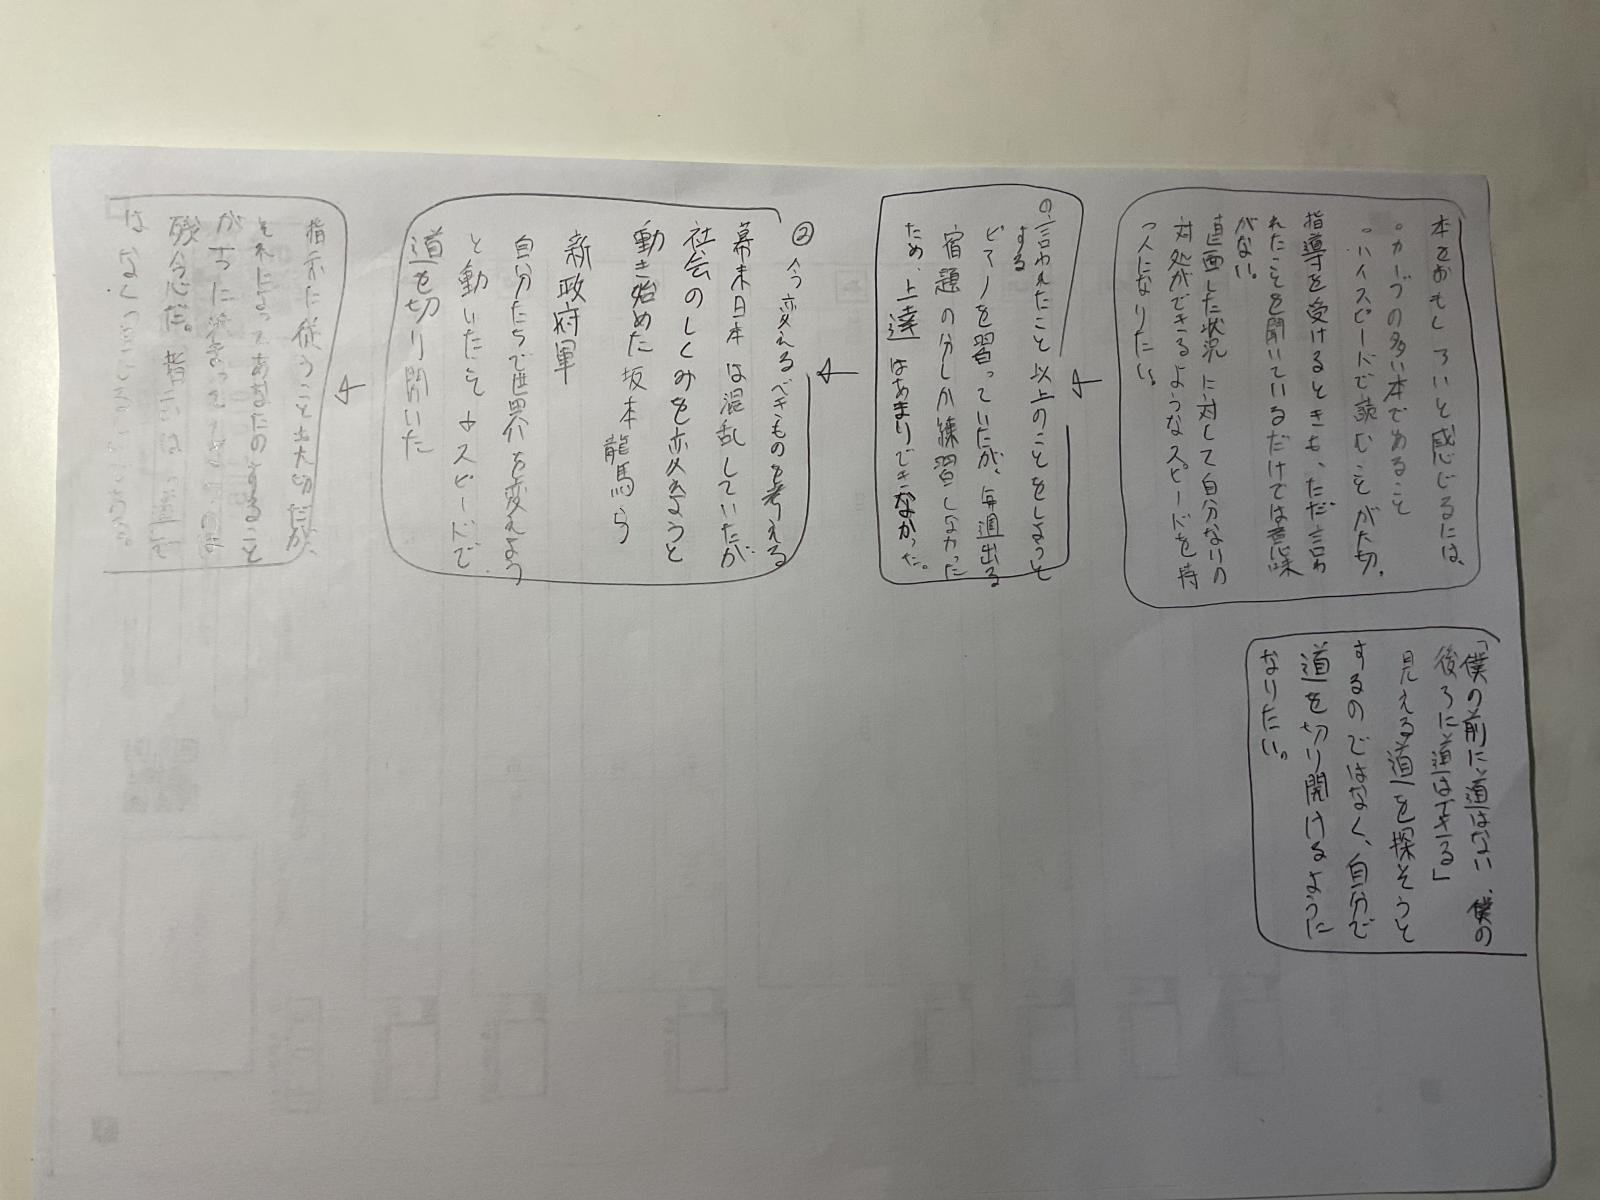 本をおもしろいと感じるには、
・カーブの多い本であること
・ハイスピードで読むことが大切。
指導を受けるときも、ただ言わ
れたことを聞いているだけでは意味
がない。
直面した状況に対して自分なりの
対処ができるようなスピードを持
つ人になりたい。
言われたこと以上のことをしようと
する
ピアノを習っていたが、毎週出る
宿題の分しか練習しなかった
ため、上達はあまりできなかった。
② 今変えるべきものを考える
幕末日本は混乱していたが
社会のしくみを変えようと
動き始めた坂本龍馬ら
新政府軍
自分たちで世界を変えよう
と動いたこと→スピードで
道を切り開いた
指示に従うことも大切だが、
それによってあなたのすること
が
残念だ。指示は
は なく
「僕の前に道はない、僕の
後ろに道はできる」
見える道を探そうと
するのではなく、自分で
道を切り開けるように
なりたい。